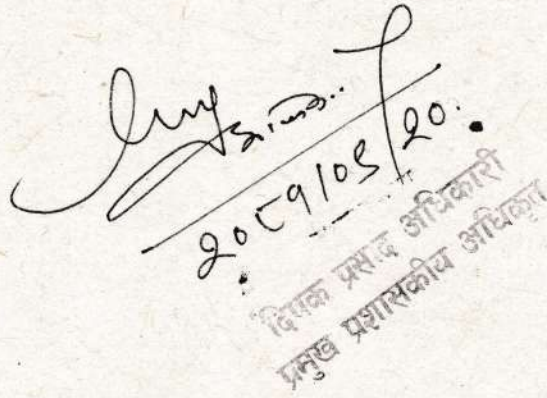 २०८१/०९/२०.
दिपक प्रसाद अधिकारी
प्रमुख प्रशासकीय अधिकृत